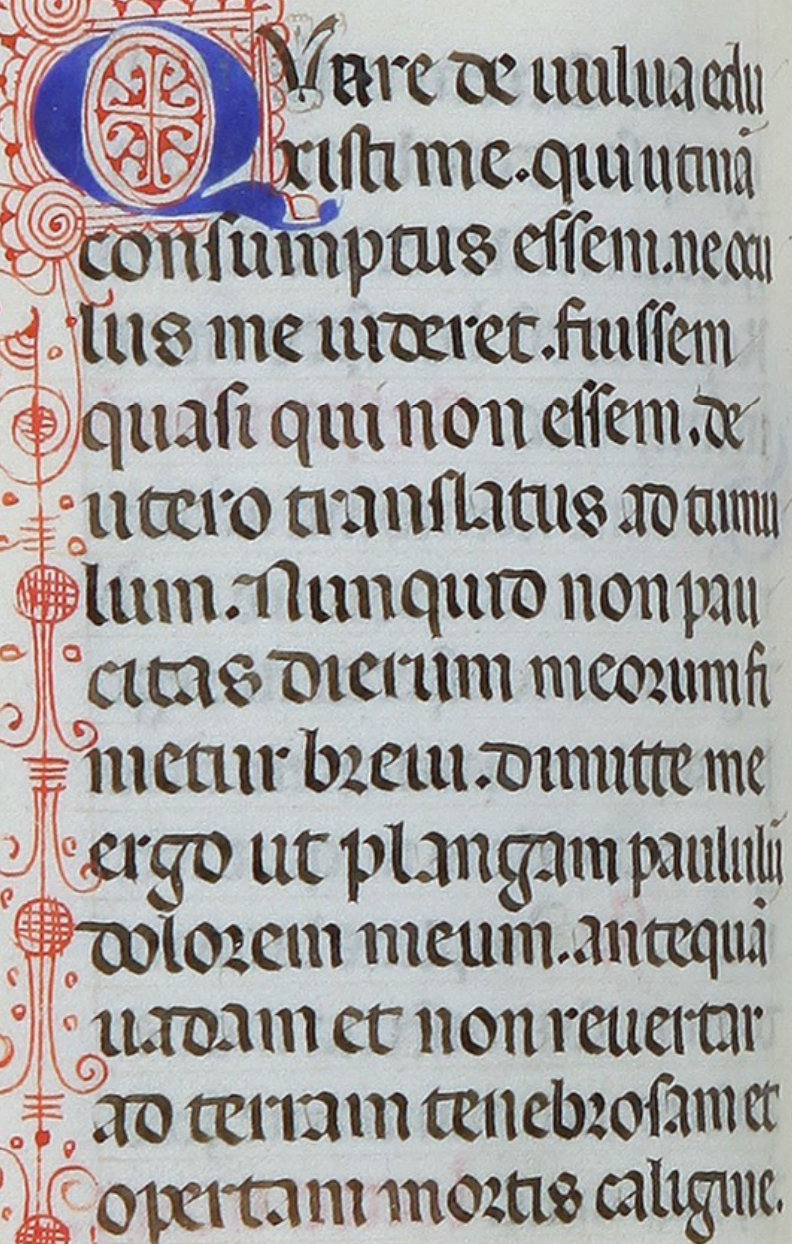 QUare de uulua edu
xisti me. qui utinā
consumptus essem. ne ocu
lus me uideret. fuissem
quasi qui non essem. de
utero translatus ad tumu
lum. Nunquid non pau
citas dierum meorum fi
nietur breui. dimitte me
ergo ut plangam paululū
dolorem meum. antequā
uadam et non reuertar
ad terram tenebrosam et
opertam mortis caligine.